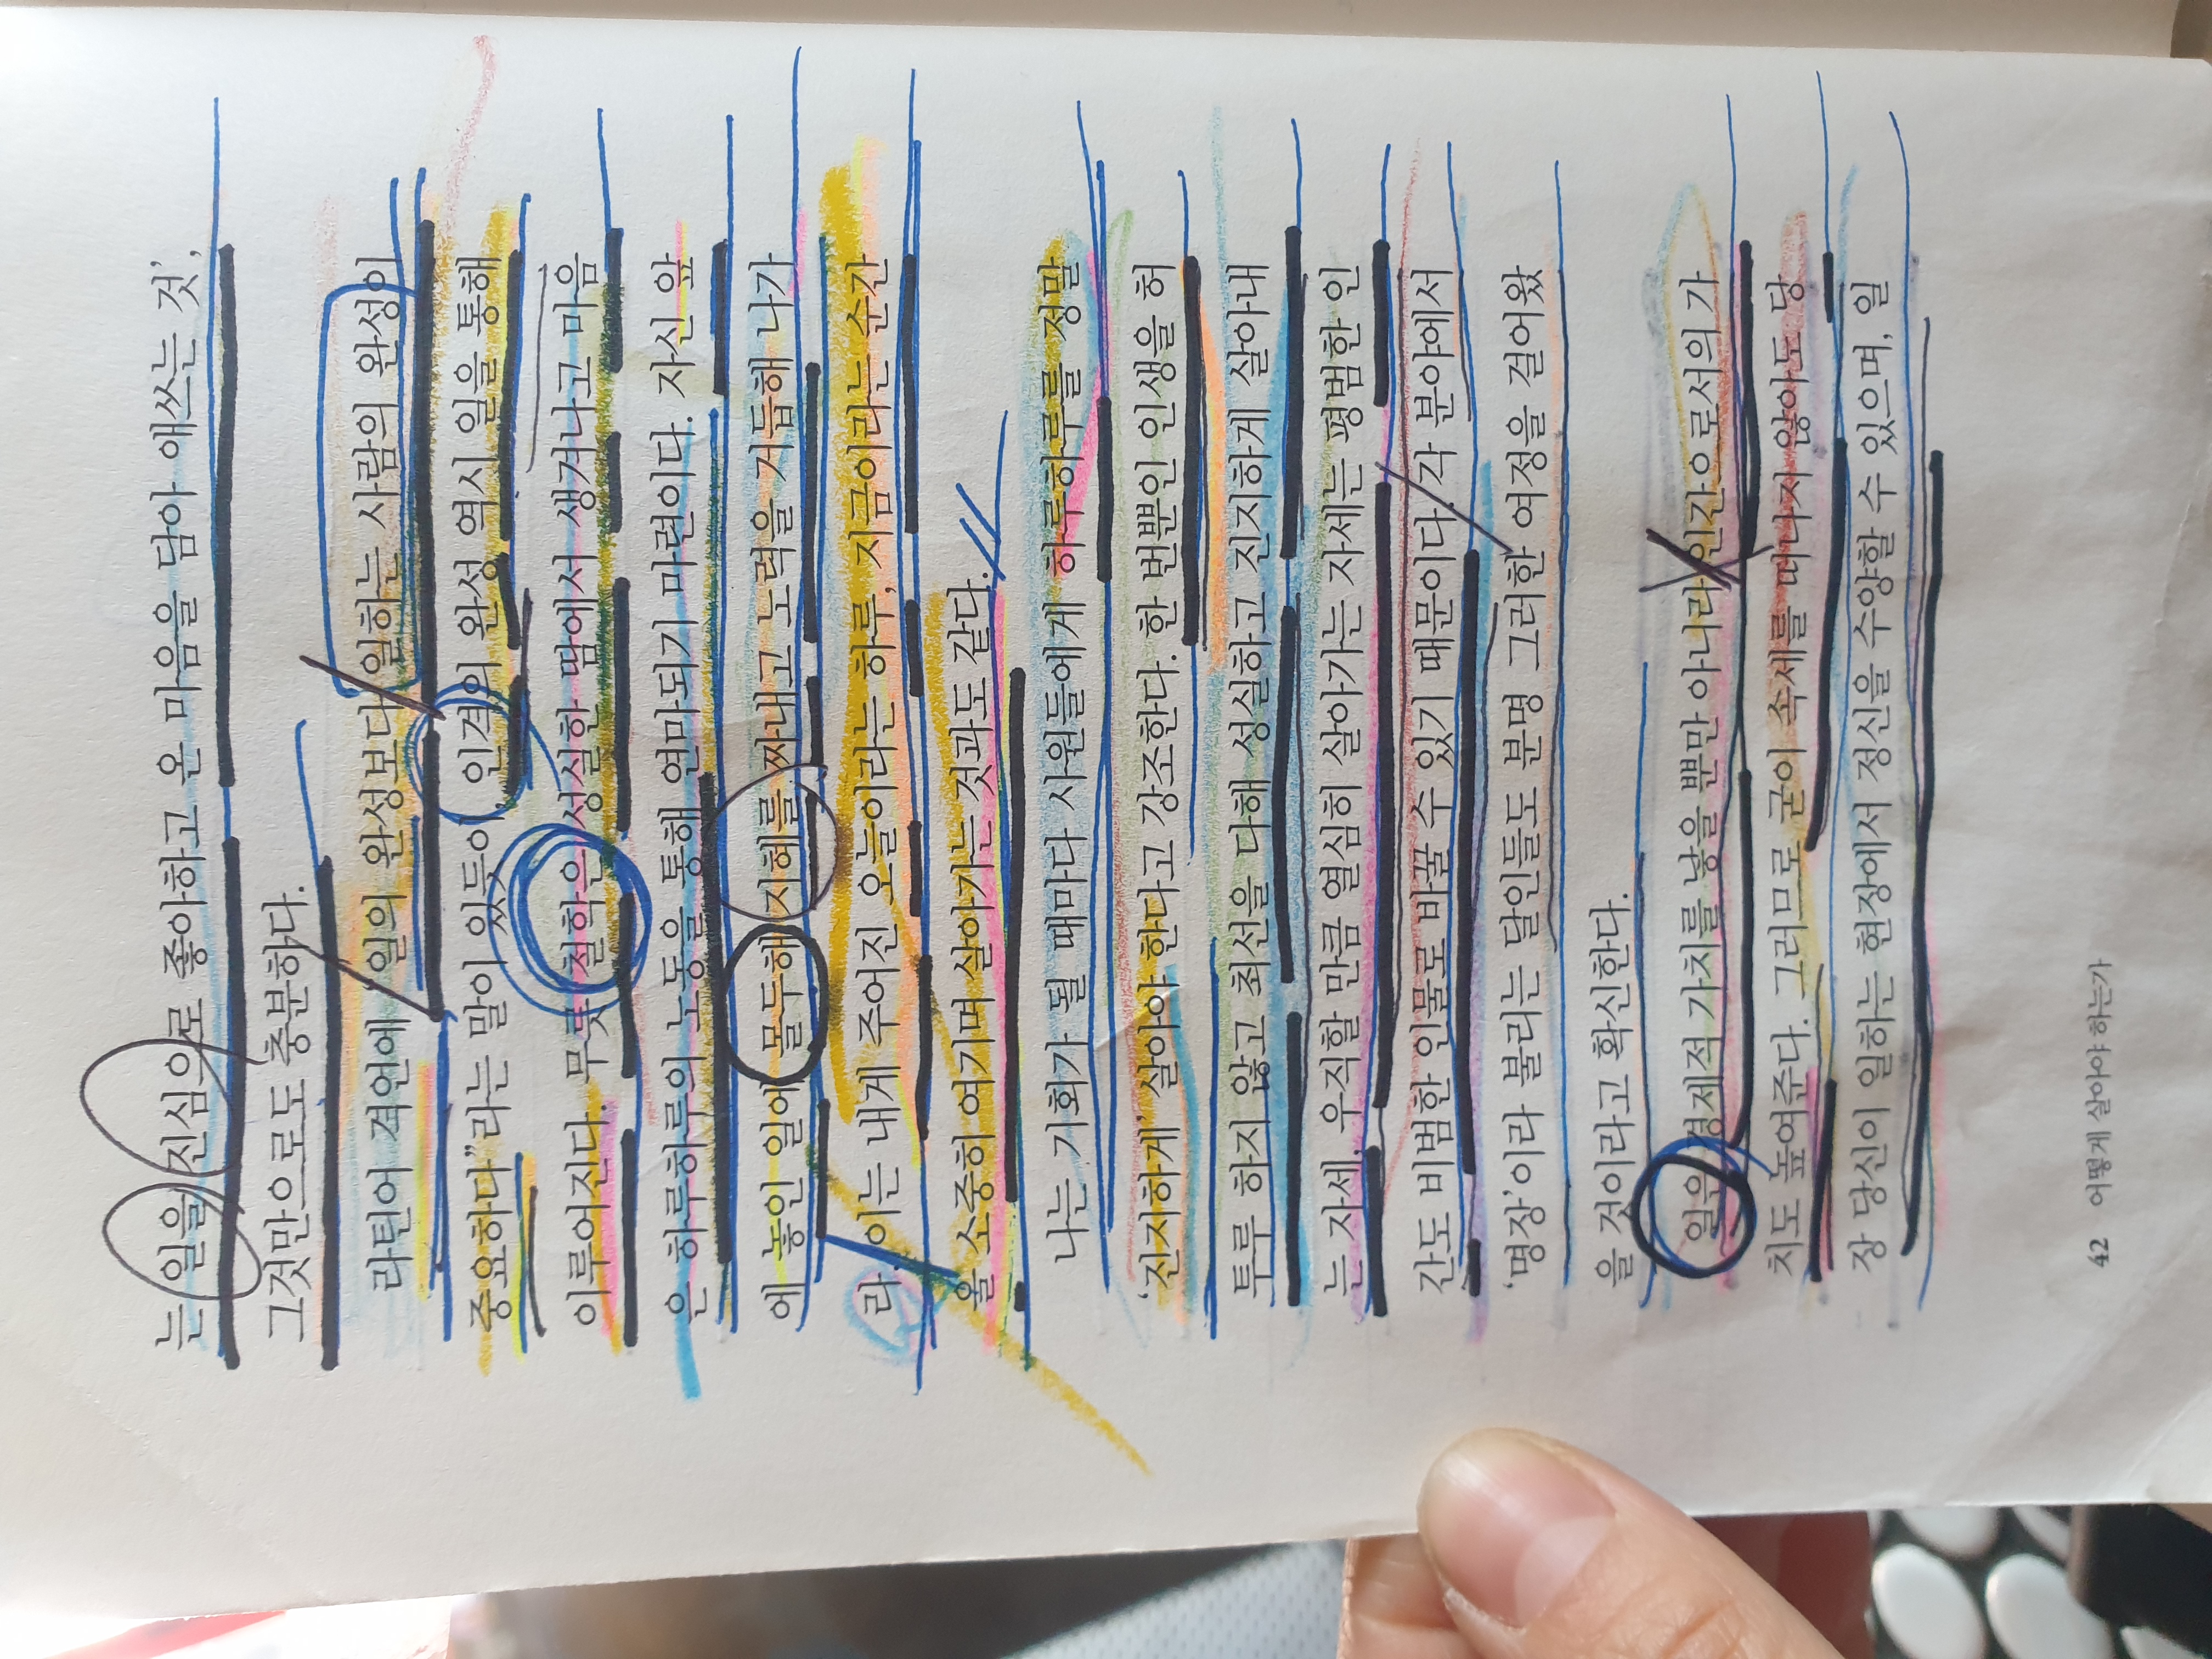 는 일을 진심으로 좋아하고 온 마음을 담아 애쓰는 것',
그것만으로도 충분하다.
라틴어 격언에 "일의 완성보다 일하는 사람의 완성이
중요하다"라는 말이 있듯이, 인격의 완성 역시 일을 통해
이루어진다. 무릇 철학은 성실한 땀에서 생겨나고 마음
은 하루하루의 노동을 통해 연마되기 마련이다. 자신 앞
에 놓인 일에 몰두해 지혜를 짜내고 노력을 거듭해 나가
라. 이는 내게 주어진 오늘이라는 하루, 지금이라는 순간
을 소중히 여기며 살아가는 것과도 같다.
나는 기회가 될 때마다 사원들에게 하루하루를 정말
'진지하게' 살아야 한다고 강조한다. 한 번뿐인 인생을 허
투루 하지 않고 최선을 다해 성실하고 진지하게 살아내
는 자세, 우직할 만큼 열심히 살아가는 자세는 평범한 인
간도 비범한 인물로 바꿀 수 있기 때문이다. 각 분야에서
'명장'이라 불리는 달인들도 분명 그러한 여정을 걸어왔
을 것이라고 확신한다.
일은 경제적 가치를 낳을 뿐만 아니라 인간으로서의 가
치도 높여준다. 그러므로 굳이 속세를 떠나지 않아도 당
장 당신이 일하는 현장에서 정신을 수양할 수 있으며, 일
42 어떻게 살아야 하는가